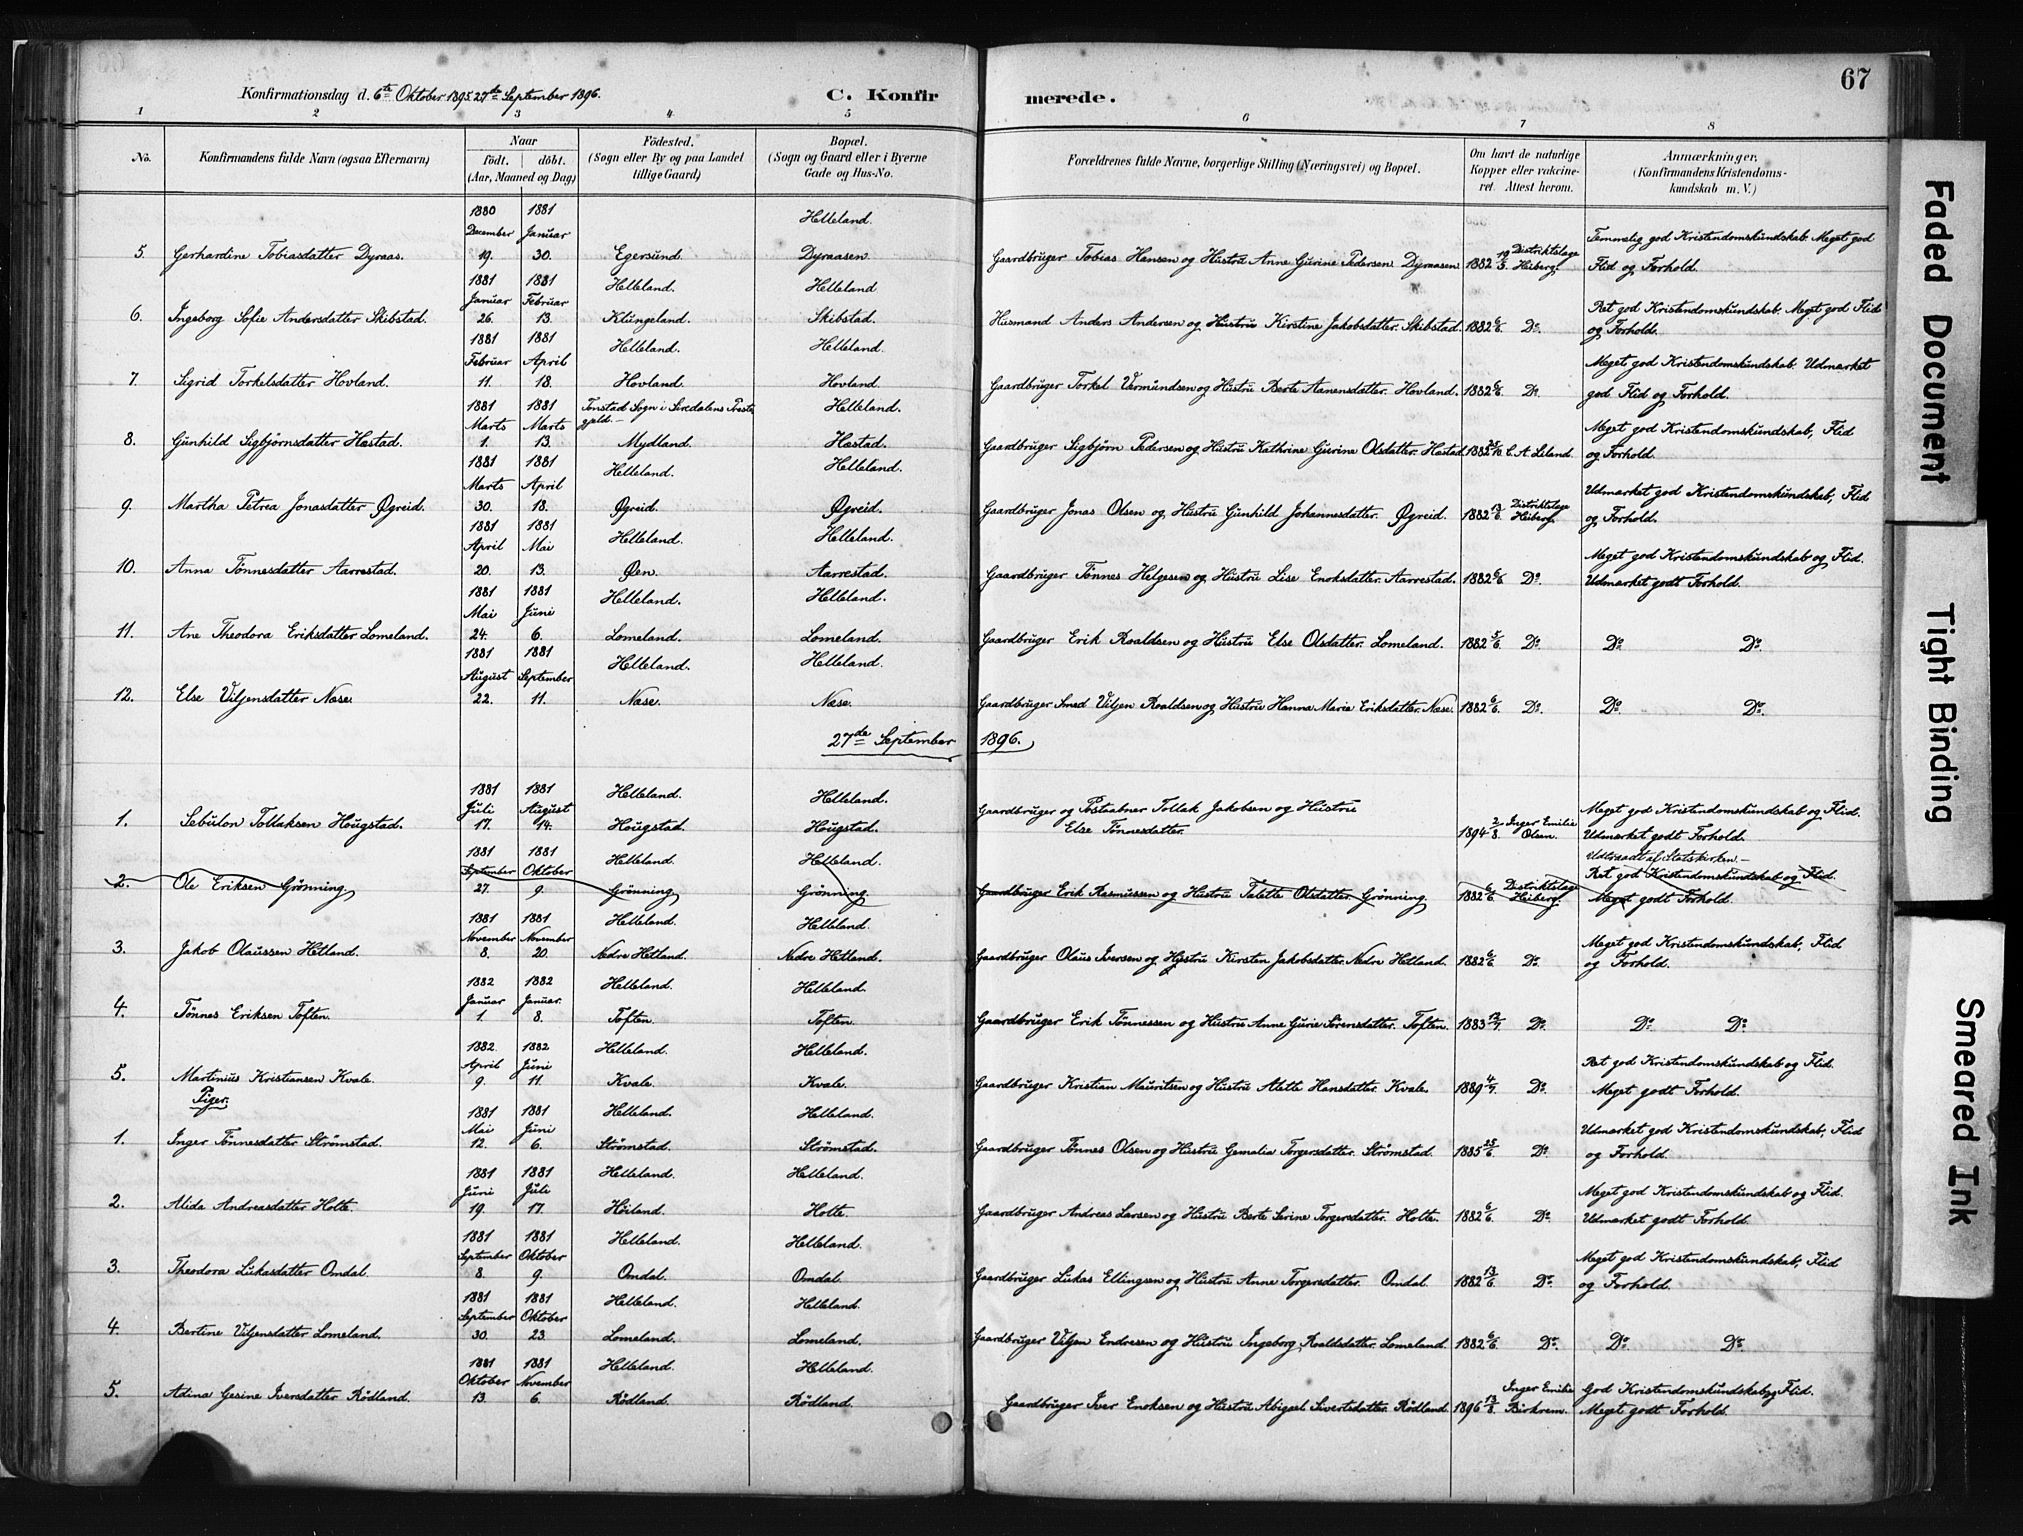 67
Konfirmationsdag d. 6te Oktober 1895. 27de September 1896.
C. Konfir merede.
1 2 3 4 5 6 7 8
No. Konfirmandens fulde Navn (ogsaa Efternavn) Naar født. døbt. (Aar, Maaned og Dag) Födested. (Sogn eller By og paa Landet tillige Gaard) Bopæl. (Sogn og Gaard eller i Byerne Gade og Hus-No. Forældrenes fulde Navne, borgerlige Stilling (Næringsvei) og Bopæl. Om havt de naturlige Kopper eller vakcineret. Attest herom. Anmærkninger, (Konfirmandens Kristendomskundskab m. V.)
1880 1881 Helleland.
December Januar
5. Gerhardine Tobiasdatter Dyraas. 19. 30. Egersund. Dyraasen. Gaardbruger Tobias Hansen og Hustru Anne Gurine Pedersen Dyraasen 1882 19/3. Distriktslæge Heiberg. Temmelig god Kristendomskundskab. Meget god Flid og Forhold.
1881 1881 Helleland. Helleland
Januar Februar
6. Ingeborg Sofie Andersdatter Skibstad. 26. 13. Klungeland. Skibstad. Husmand Anders Andersen og Hustru Kirstine Jakobsdatter. Skibstad. 1882 6/6. Do. Ret god Kristendomskundskab. Meget god Flid og Forhold.
1881 1881 Helleland. Helleland.
Februar April
7. Sigrid Torkelsdatter Hovland. 11. 18. Hovland. Hovland. Gaardbruger Torkel Vermundsen og Hustru Berte Aanensdatter. Hovland. 1882 6/6. Do. Meget god Kristendomskundskab. Udmærket god Flid og Forhold.
1881 1881 Tonstad Sogn i Siredalens Præstegjeld. Helleland.
Marts Marts
8. Gunhild Sigbjørnsdatter Hæstad. 1. 13. Mydland. Hæstad. Gaardbruger Sigbjørn Pedersen og Hustru Kathrine Gurine Olsdatter. Hæstad. 1882 /10. C. A. Leland. Meget god Kristendomskundskab, Flid og Forhold.
1881 1881 Helleland. Helleland.
Marts April
9. Martha Petrea Jonasdatter Øgreid. 30. 18. Øgreid. Øgreid. Gaardbruger Jonas Olsen og Hustru Gunhild Johannesdatter. Øgreid. 1882 13/6. Distriktslæge Heiberg. Udmærket god Kristendomskundskab, Flid og Forhold.
1881 1881 Helleland. Helleland.
April Mai
10. Anna Tønnesdatter Aarrestad. 20. 13. Øen. Aarrestad. Gaardbruger Tønnes Helgesen og Hustru Lise Enoksdatter. Aarrestad. 1882 6/6. Do. Meget god Kristendomskundskab og Flid. Udmærket godt Forhold.
1881 1881 Helleland. Helleland.
Mai Juni
11. Ane Theodora Eriksdatter Lomeland. 24. 6. Lomeland. Lomeland. Gaardbruger Erik Roaldsen og Hustru Else Olsdatter. Lomeland. 1882 5/6. Do. Do. Do.
1881 1881 Helleland. Helleland.
August September
12. Else Viljensdatter Næse. 22. 11. Næse. Næse. Gaardbruger Smed Viljen Roaldsen og Hustru Hanna Marie Eriksdatter. Næse. 1882 6/6. Do. Do. Do.
27de September 1896.
1881 1881 Helleland. Helleland.
Juli August
1. Sebulon Tollaksen Hougstad. 17. 14. Hougstad. Hougstad. Gaardbruger og Postaabner Tollak Jakobsen og Hustru Else Tønnesdatter. 1894 2/8. Inger Emilie Olsen. Meget god Kristendomskundskab og Flid. Udmærket godt Forhold.
1881 1881 Helleland. Helleland. Udtraadt af Statskirken.
September Oktober
2. Ole Eriksen Grønning. 27. 9. Grønning Grønning. Gaardbruger Erik Rasmussen og Hustru Talette Olsdatter. Grønning. 1882 6/6. Distriktslæge Heiberg. Ret god Kristendomskundskab og Flid. Meget godt Forhold.
1881 1881 Helleland. Helleland.
November November
3. Jakob Olaussen Hetland. 8. 20. Nedre Hetland. Nedre Hetland. Gaardbruger Olaus Iversen og Hustru Kirsten Jakobsdatter. Nedre Hetland. 1882 6/6. Do. Meget god Kristendomskundskab, Flid og Forhold.
1882 1882 Helleland. Helleland.
Januar Januar.
4. Tønnes Eriksen Toften. 1. 8. Toften. Toften. Gaardbruger Erik Tønnessen og Hustru Anne Gurie Sørensdatter. Toften. 1883 12/7. Do. Do. Do.
1882 1882 Helleland. Helleland.
April Juni
5. Martinius Kristiansen Kvale. 9. 11. Kvale. Kvale. Gaardbruger Kristian Mauritsen og Hustru Alette Hansdatter. Kvale. 1889 4/7. Do. Ret god Kristendomskundskab og Flid. Meget godt Forhold.
Piger.
1881 1881 Helleland. Helleland.
Mai Juni
1. Inger Tønnesdatter Strømstad. 12. 6. Strømstad. Strømstad. Gaardbruger Tønnes Olsen og Hustru Gemalia Torgersdatter. Strømstad. 1885 25/6. Do. Udmærket god Kristendomskundskab, Flid og Forhold.
1881 1881 Helleland. Helleland.
Juni Juli
2. Alida Andreasdatter Holte. 19. 17. Høiland. Holte. Gaardbruger Andreas Larsen og Hustru Berte Serine Torgersdatter. Holte. 1882 6/6. Do. Meget god Kristendomskundskab og Flid. Udmærket godt Forhold.
1881 1881 Helleland. Helleland.
September Oktober
3. Theodora Lukasdatter Omdal. 8. 9. Omdal. Omdal. Gaardbruger Lukas Ellingsen og Hustru Anne Torgersdatter. Omdal. 1882 13/6. Do. Meget god Kristendomskundskab, Flid og Forhold.
1881 1881 Helleland. Helleland.
September Oktober
4. Bertine Viljensdatter Lomeland. 30. 23. Lomeland. Lomeland. Gaardbruger Viljen Endresen og Hustru Ingeborg Roaldsdatter. Lomeland. 1882 6/6. Do. Do. Do.
1881 1881 Helleland. Helleland.
Oktober November
5. Adina Gesine Iversdatter Rødland. 13. 6. Rødland. Rødland. Gaardbruger Iver Enoksen og Hustru Abigael Sivertsdatter. Rødland. 1896 13/8. Inger Emilie Birkrem. God Kristendomskundskab og Flid. Meget godt Forhold.
Faded Document
Tight Binding
Smeared Ink